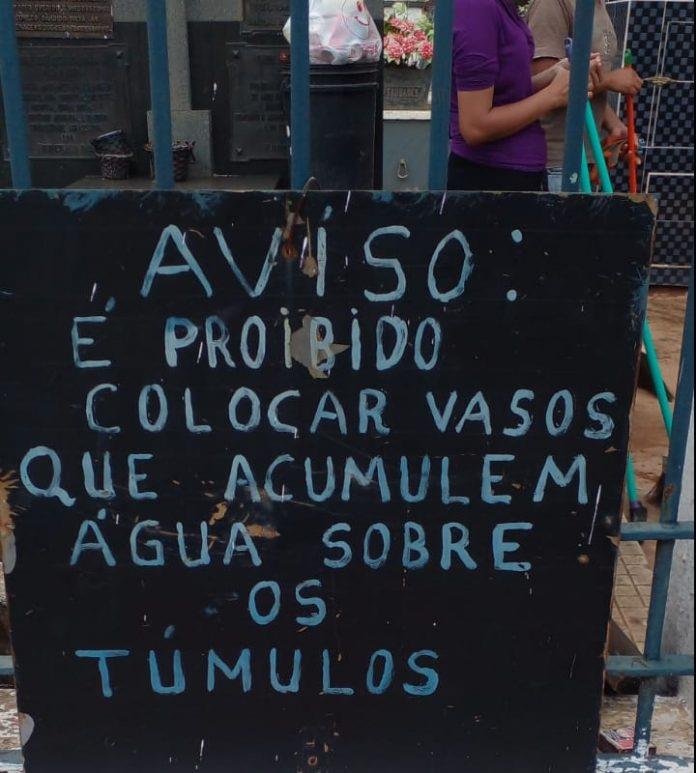 AVISO:
É PROIBIDO
COLOCAR VASOS
QUE ACUMULEM
ÁGUA SOBRE
OS
TÚMULOS